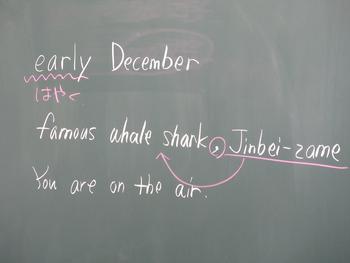 early December
はやく
famous whale shark, Jinbei-zame
You are on the air.